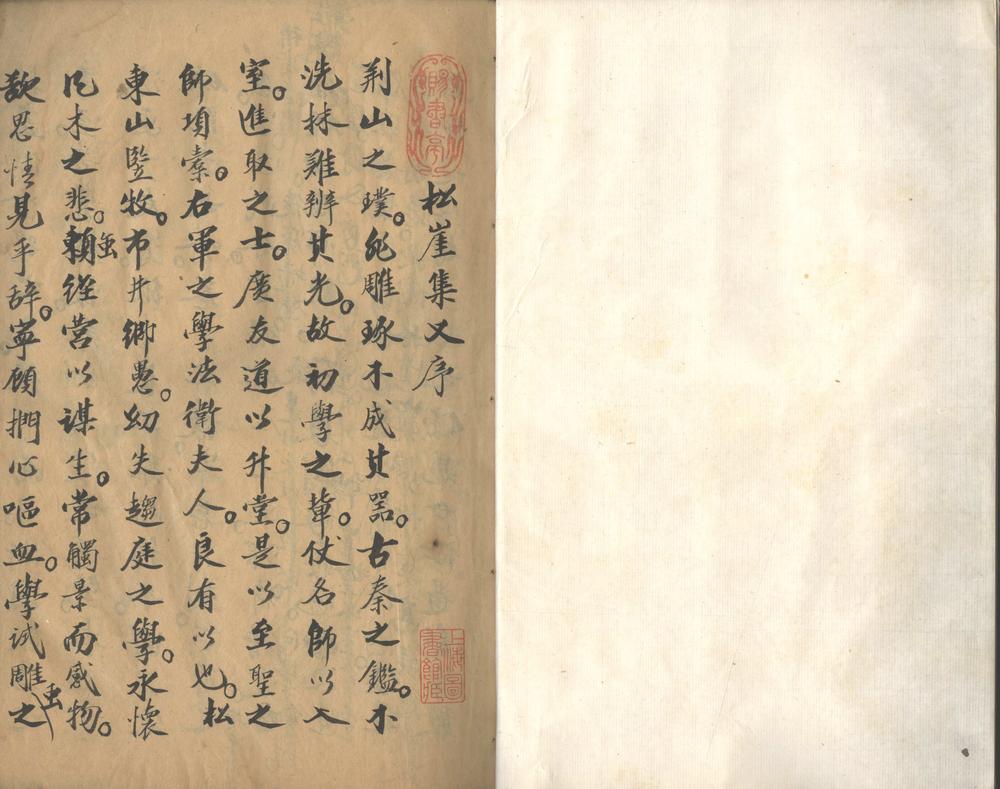 松崖集又序
荆山之璞。死雕琢不成其器。古秦之鑑。不
洗抹難辨其光。故初學之輩。仗名師以入
室。進取之士。廣友道以升堂。是以至聖之
師項橐。右軍之學法衛夫人。良有以也。松
東山豎牧。市井鄉愚。幼失趨庭之學。永懷
風木之悲。賴經營以謀生。常觸景而感物。
歌思情見乎辞。寧顧捫心嘔血。學試雕虫之
上海圖書館藏